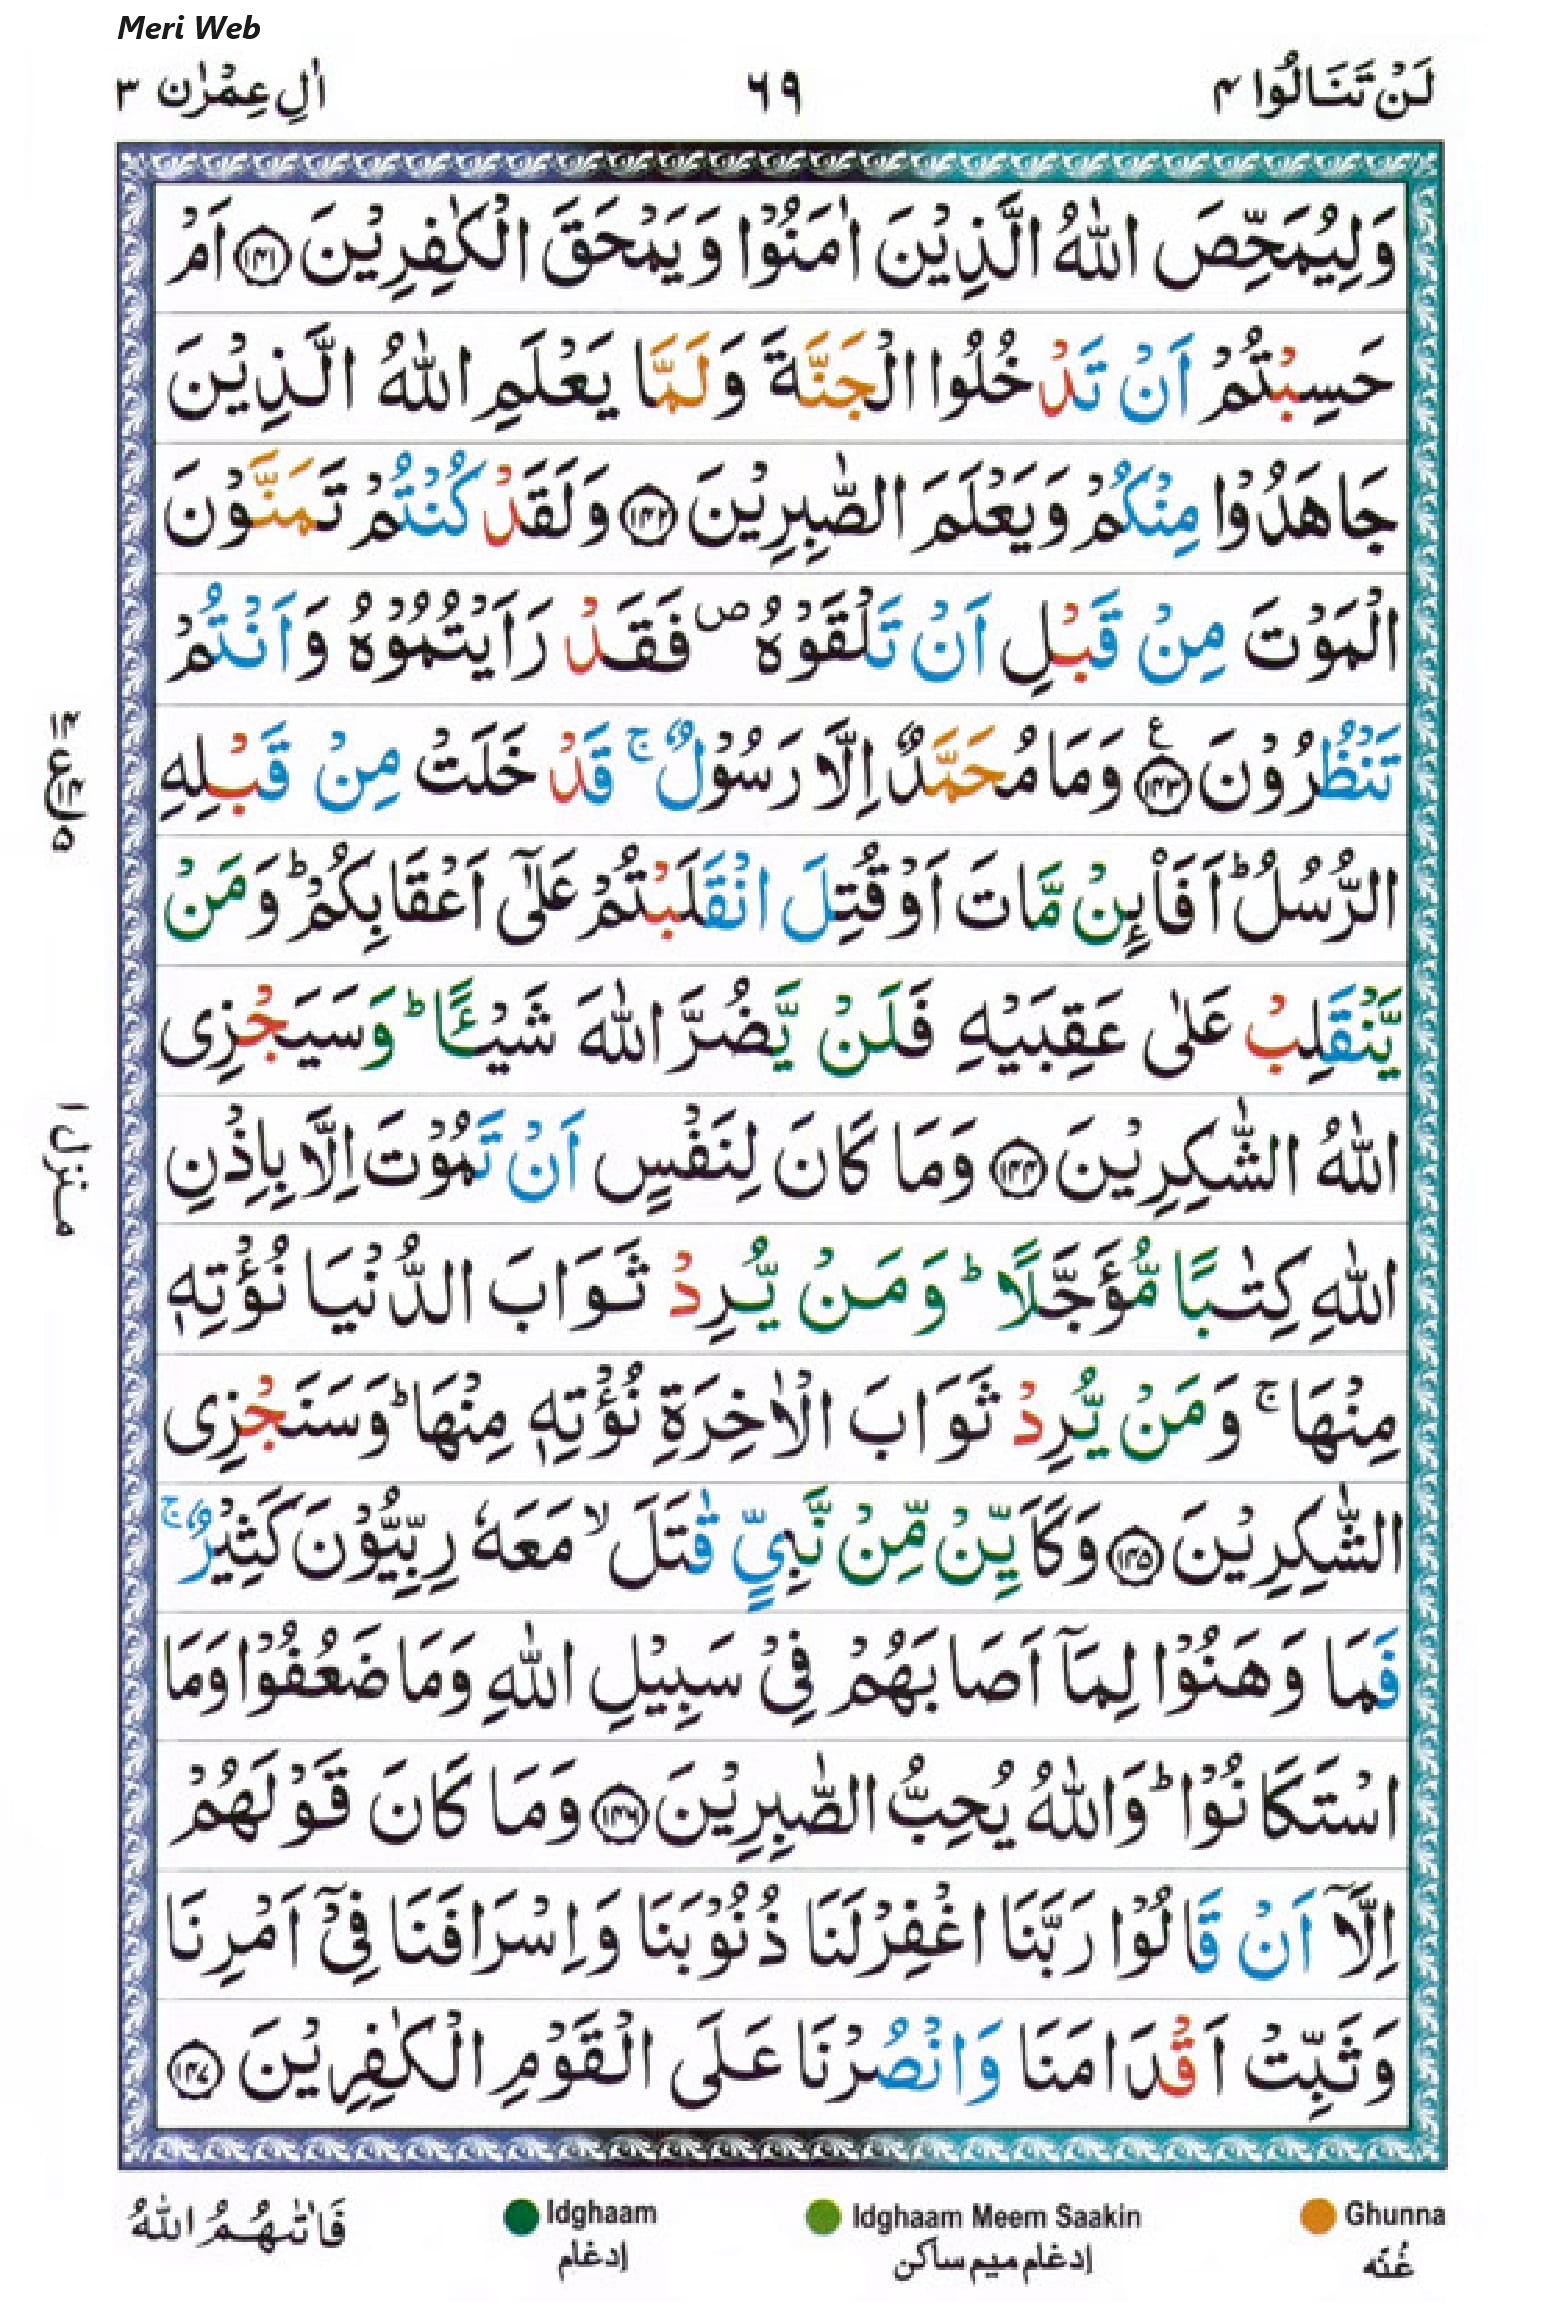 Meri Web
لَنْ تَنَالُوا ٤ ٦٩ اٰلِ عِمْرٰن ٣
وَلِيُمَحِّصَ اللّٰهُ الَّذِيْنَ اٰمَنُوْا وَيَمْحَقَ الْكٰفِرِيْنَ ۝١٤١ اَمْ
حَسِبْتُمْ اَنْ تَدْخُلُوا الْجَنَّةَ وَلَمَّا يَعْلَمِ اللّٰهُ الَّذِيْنَ
جَاهَدُوْا مِنْكُمْ وَيَعْلَمَ الصّٰبِرِيْنَ ۝١٤٢ وَلَقَدْ كُنْتُمْ تَمَنَّوْنَ
الْمَوْتَ مِنْ قَبْلِ اَنْ تَلْقَوْهُ ص فَقَدْ رَاَيْتُمُوْهُ وَاَنْتُمْ
تَنْظُرُوْنَ ۝١٤٣ ع وَمَا مُحَمَّدٌ اِلَّا رَسُوْلٌ ۚ قَدْ خَلَتْ مِنْ قَبْلِهِ
الرُّسُلُ ؕ اَفَا۟ئِنْ مَّاتَ اَوْ قُتِلَ انْقَلَبْتُمْ عَلٰٓى اَعْقَابِكُمْ ؕ وَمَنْ
يَّنْقَلِبْ عَلٰى عَقِبَيْهِ فَلَنْ يَّضُرَّ اللّٰهَ شَيْـًٔا ؕ وَسَيَجْزِى
اللّٰهُ الشّٰكِرِيْنَ ۝١٤٤ وَمَا كَانَ لِنَفْسٍ اَنْ تَمُوْتَ اِلَّا بِاِذْنِ
اللّٰهِ كِتٰبًا مُّؤَجَّلًا ؕ وَمَنْ يُّرِدْ ثَوَابَ الدُّنْيَا نُؤْتِهٖ
مِنْهَا ۚ وَمَنْ يُّرِدْ ثَوَابَ الْاٰخِرَةِ نُؤْتِهٖ مِنْهَا ؕ وَسَنَجْزِى
الشّٰكِرِيْنَ ۝١٤٥ وَكَاَيِّنْ مِّنْ نَّبِيٍّ قٰتَلَ ۙ مَعَهٗ رِبِّيُّوْنَ كَثِيْرٌ ۚ
فَمَا وَهَنُوْا لِمَآ اَصَابَهُمْ فِيْ سَبِيْلِ اللّٰهِ وَمَا ضَعُفُوْا وَمَا
اسْتَكَانُوْا ؕ وَاللّٰهُ يُحِبُّ الصّٰبِرِيْنَ ۝١٤٦ وَمَا كَانَ قَوْلَهُمْ
اِلَّآ اَنْ قَالُوْا رَبَّنَا اغْفِرْ لَنَا ذُنُوْبَنَا وَاِسْرَافَنَا فِيْٓ اَمْرِنَا
وَثَبِّتْ اَقْدَامَنَا وَانْصُرْنَا عَلَى الْقَوْمِ الْكٰفِرِيْنَ ۝١٤٧
١٤ ع ٥
منزل ١
Ghunna Idghaam Meem Saakin Idghaam فَاٰتٰىهُمُ اللّٰهُ
غُنّه إدغام ميم ساكن إدغام